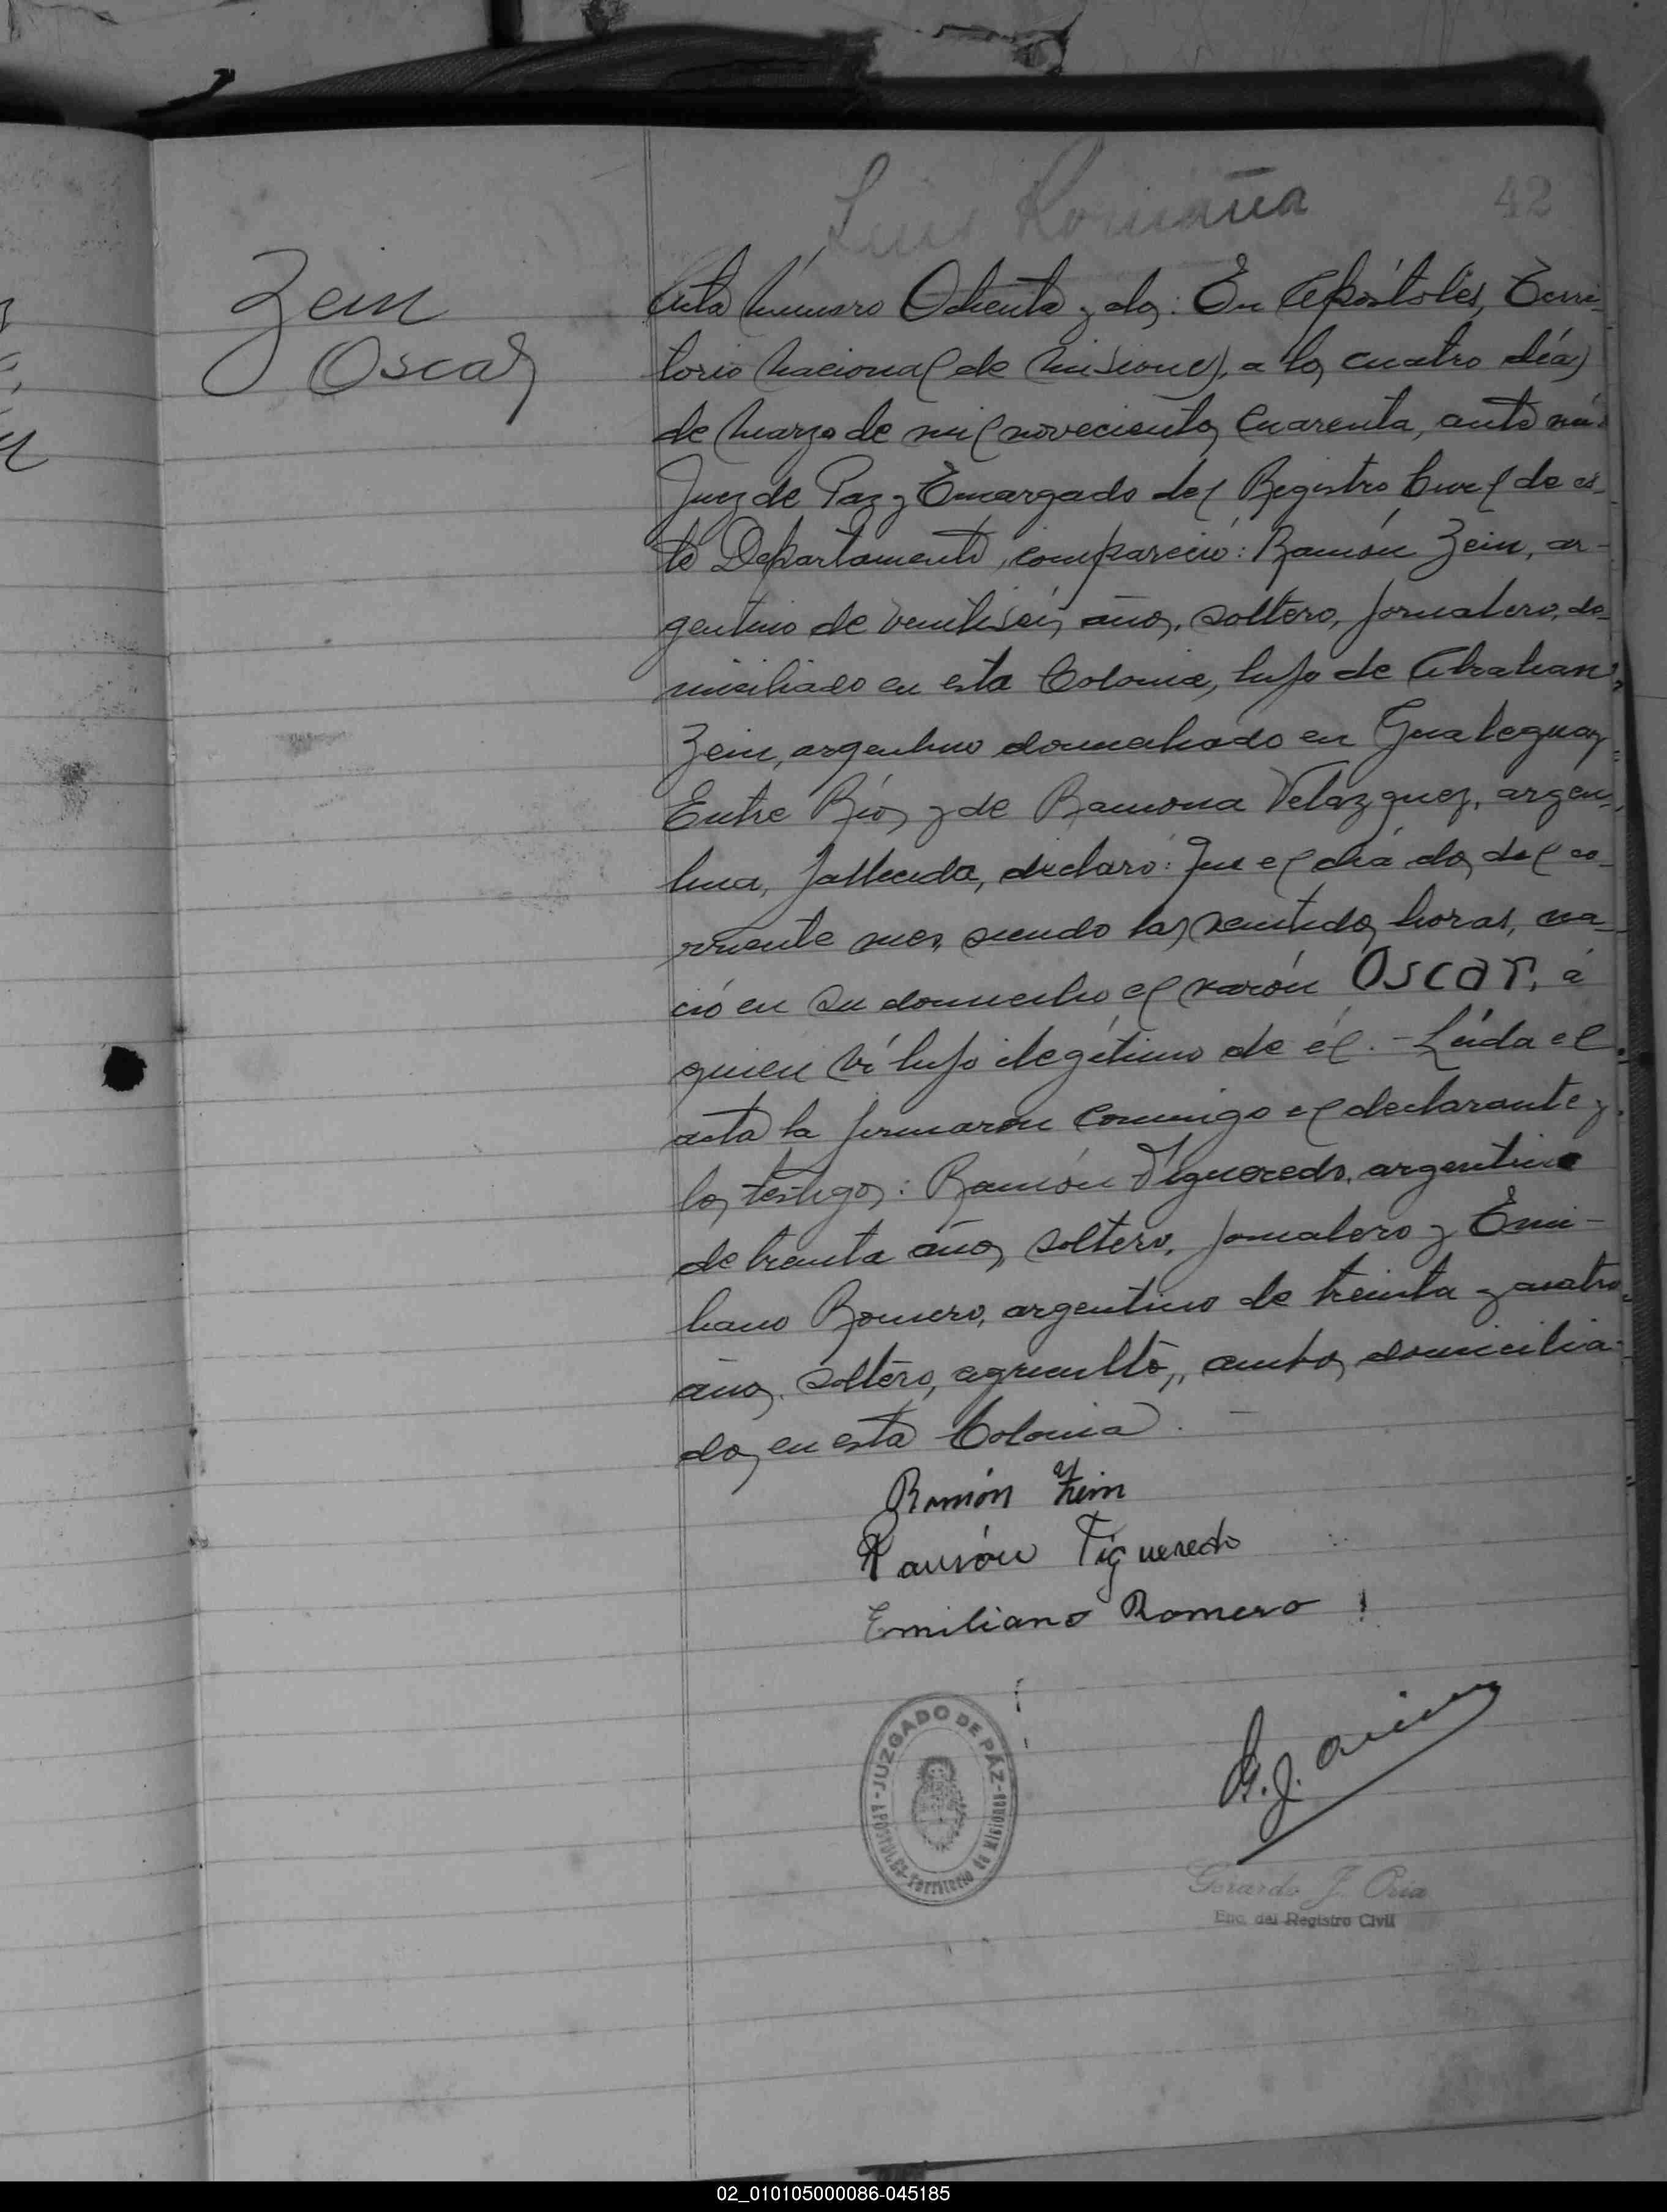 Luis Romaña
42
Zein
Oscar
Acta número Ochenta y dos: En Apóstoles, Terri-
torio Nacional de Misiones, a los cuatro días
de Marzo de mil novecientos Cuarenta, ante mí:
Juez de Paz y Encargado del Registro Civil de es-
te Departamento, compareció: Ramón Zein, ar-
gentino de veintiseis años, soltero, jornalero, do-
miciliado en esta Colonia, hijo de Abrahan
Zein, argentino domiciliado en Gualeguay
Entre Ríos y de Ramona Velazquez, argen-
tina, fallecida, declaró: Que el día dos del co-
rriente mes, siendo las veintidos horas, na-
ció en su domicilio el varón Oscar, á
quien ví hijo ilegítimo de él. - Leída el
acta la firmaron conmigo el declarante y
los testigos: Ramón Figueredo, argentino
de treinta años, soltero, jornalero y Emi-
liano Romero, argentino de treinta y cuatro
años, soltero, agricultor, ambos domicilia-
dos en esta Colonia. -
Ramón Zein
Ramón Figueredo
Emiliano Romero
JUZGADO DE PAZ
APOSTOLES - Territorio de Misiones
G. J. Oria
Gerardo J. Oria
Enc. del Registro Civil
02_010105000086-045185